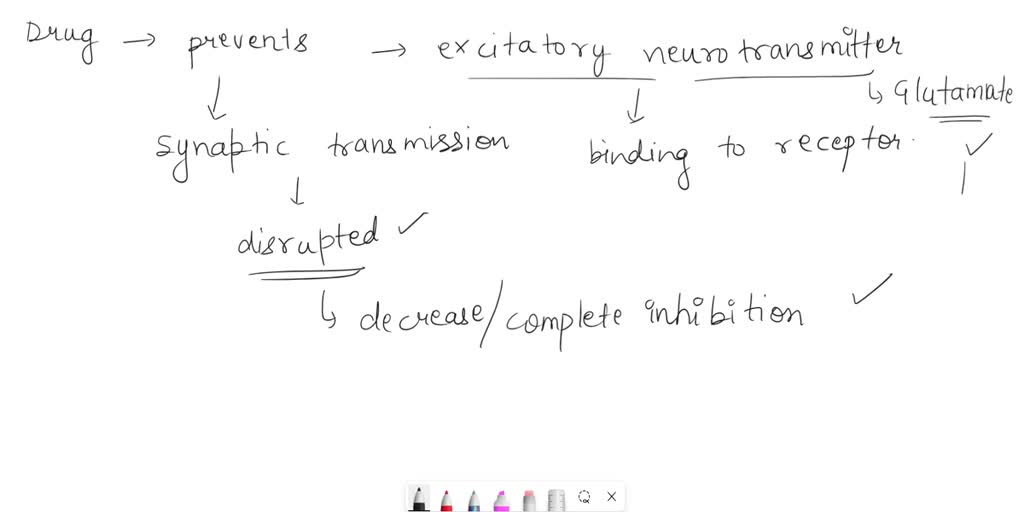 Drug → prevents → excitatory neurotransmitter
↳ Glutamate
synaptic transmission
binding to receptor.
disrupted ✓
↳ decrease/complete inhibition ✓